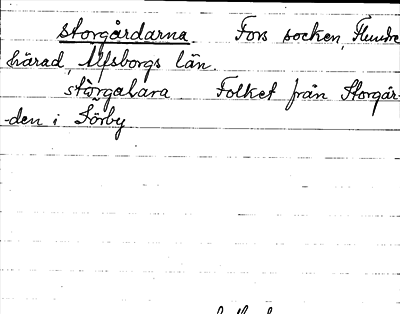 storgårdarna. Fors socken, Flundre
härad, Älfsborgs län.
stòrgaḷara Folket från Storgår-
-den i Sörby